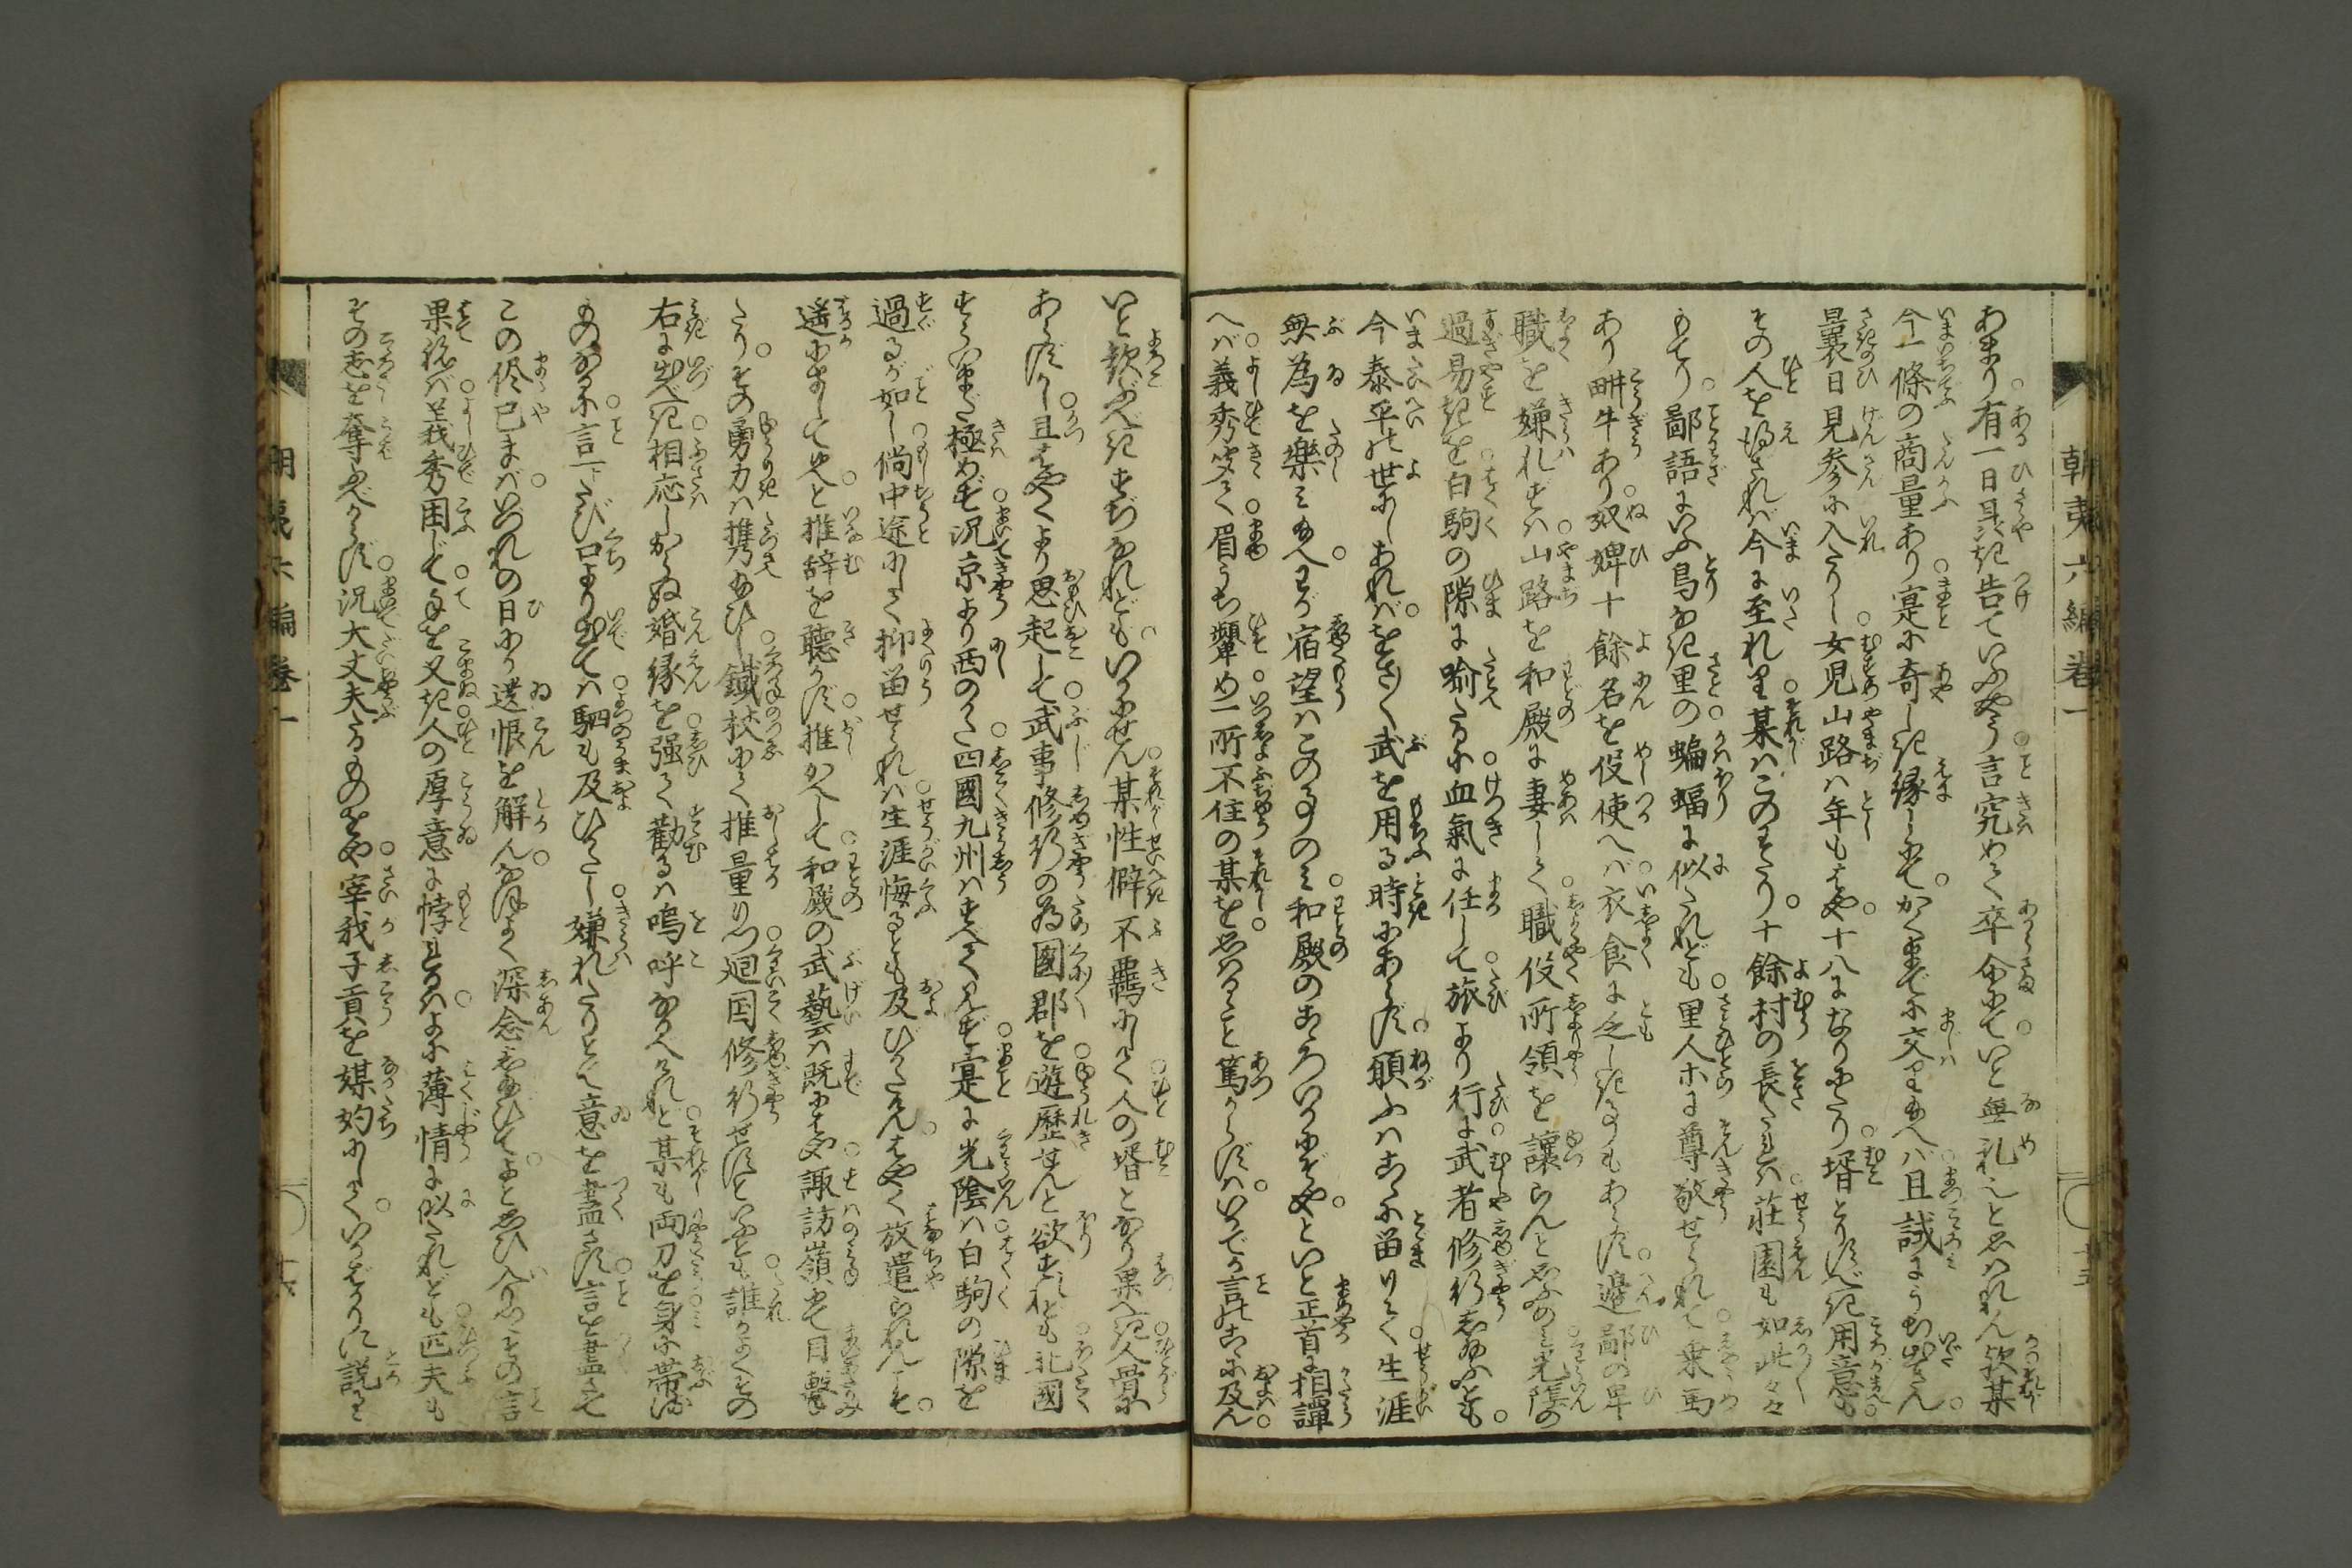 朝夷六編卷一
あまり有一日具に告ていふやう言究めて卒尒にていと無礼しと思れん歟某
今一條の商量あり寔に奇しき縁にて。かくまでに交り給へば且試にうち出さん。
曩日見参に入りし女児山路は年もはや十八になりにたり壻とりすべき用意も
その人を得ざれば今に至れり某はこのわたり。十餘村の長たれば荘園も如此々々
もてり鄙語にいふ鳥なき里の蝙蝠に似たれども里人ホに尊敬せられて乗馬
あり畊牛あり奴婢十餘名を役使へば衣食に乏しき事もあらず邉鄙の卑
職を嫌れずは山路を和殿に妻して職役所領を讓らんと思ふのみ光陰の
過易きを白駒の隙に喩たるに血氣に任して旅より行に武者修行し給ふとも。
今泰平の世にしあれば。をさをさ武を用る時にあらず願ふはこゝに畄りて生涯
無為を樂み給へ。わが宿望はこの事のみ和殿のこゝろいかにぞや。といと正首に相譚
へば義秀笑て眉うち顰め一所不住の某を思るゝこと篤からずは。いかでか言のこゝに及ん
いと歓ぶべきすぢなれども。いかにせん某性僻不羈にして人の壻となり果べき人骨に
あらずかし且はやくより思起して武事修行の為國郡を遊歴せんと欲すれども北國
すらいまだ極めず况京より西のかた四國九州はすべて見ず寔に光陰は白駒の隙を
過るが如し倘中途にして抑畄せられば生涯悔るとも及びがたけん。はやく放遣られんこそ。
遥にましてめと推辞を聴かず推かへして和殿の武藝は既にはや諏訪嶺にて目撃
たり。その勇力は携給ひし鐵杖にて推量りつ廻国修行せずといふとも誰かよくその
右に出べき相応しからぬ婚縁を强て勸るは嗚呼なるべけれど某も両刀を身に帯る
ものなるに言一トたび口より出ては駟も及びがたし嫌れたりとて意を盡さず言を盡さで
この侭已まば。いづれの日にか遺恨を解ん。なほよく深念し給ひてよと思ひ入りつゝその言
果ねば義秀困じて。手を叉き人の厚意に悖るは。よに薄情に似たれども匹夫も
その志を奪ふべからず况大丈夫たるものをや宰我子貢を媒妁にして。いかばかりに説る
朝夷六編卷一
十六